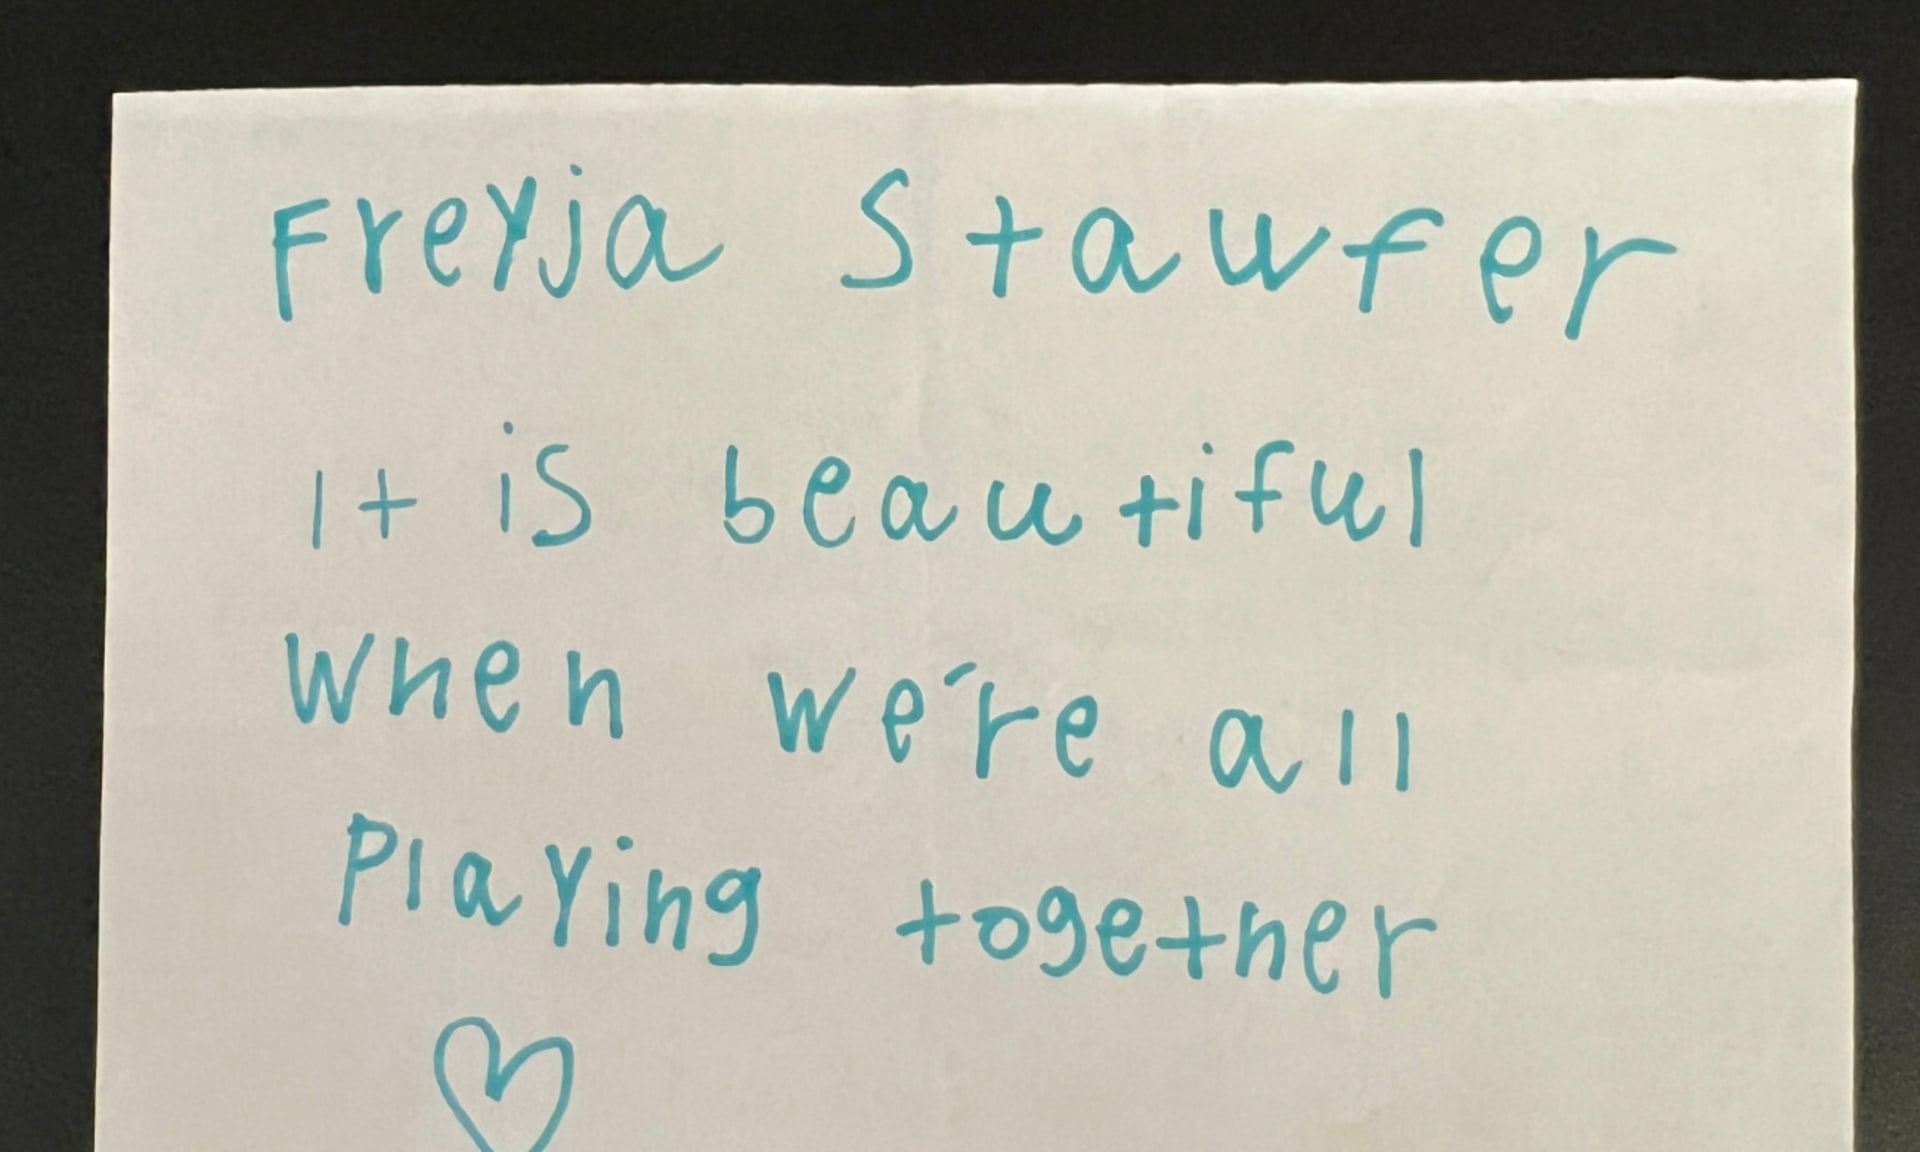 Freyja Stawfer
It is beautiful
when we're all
Playing together